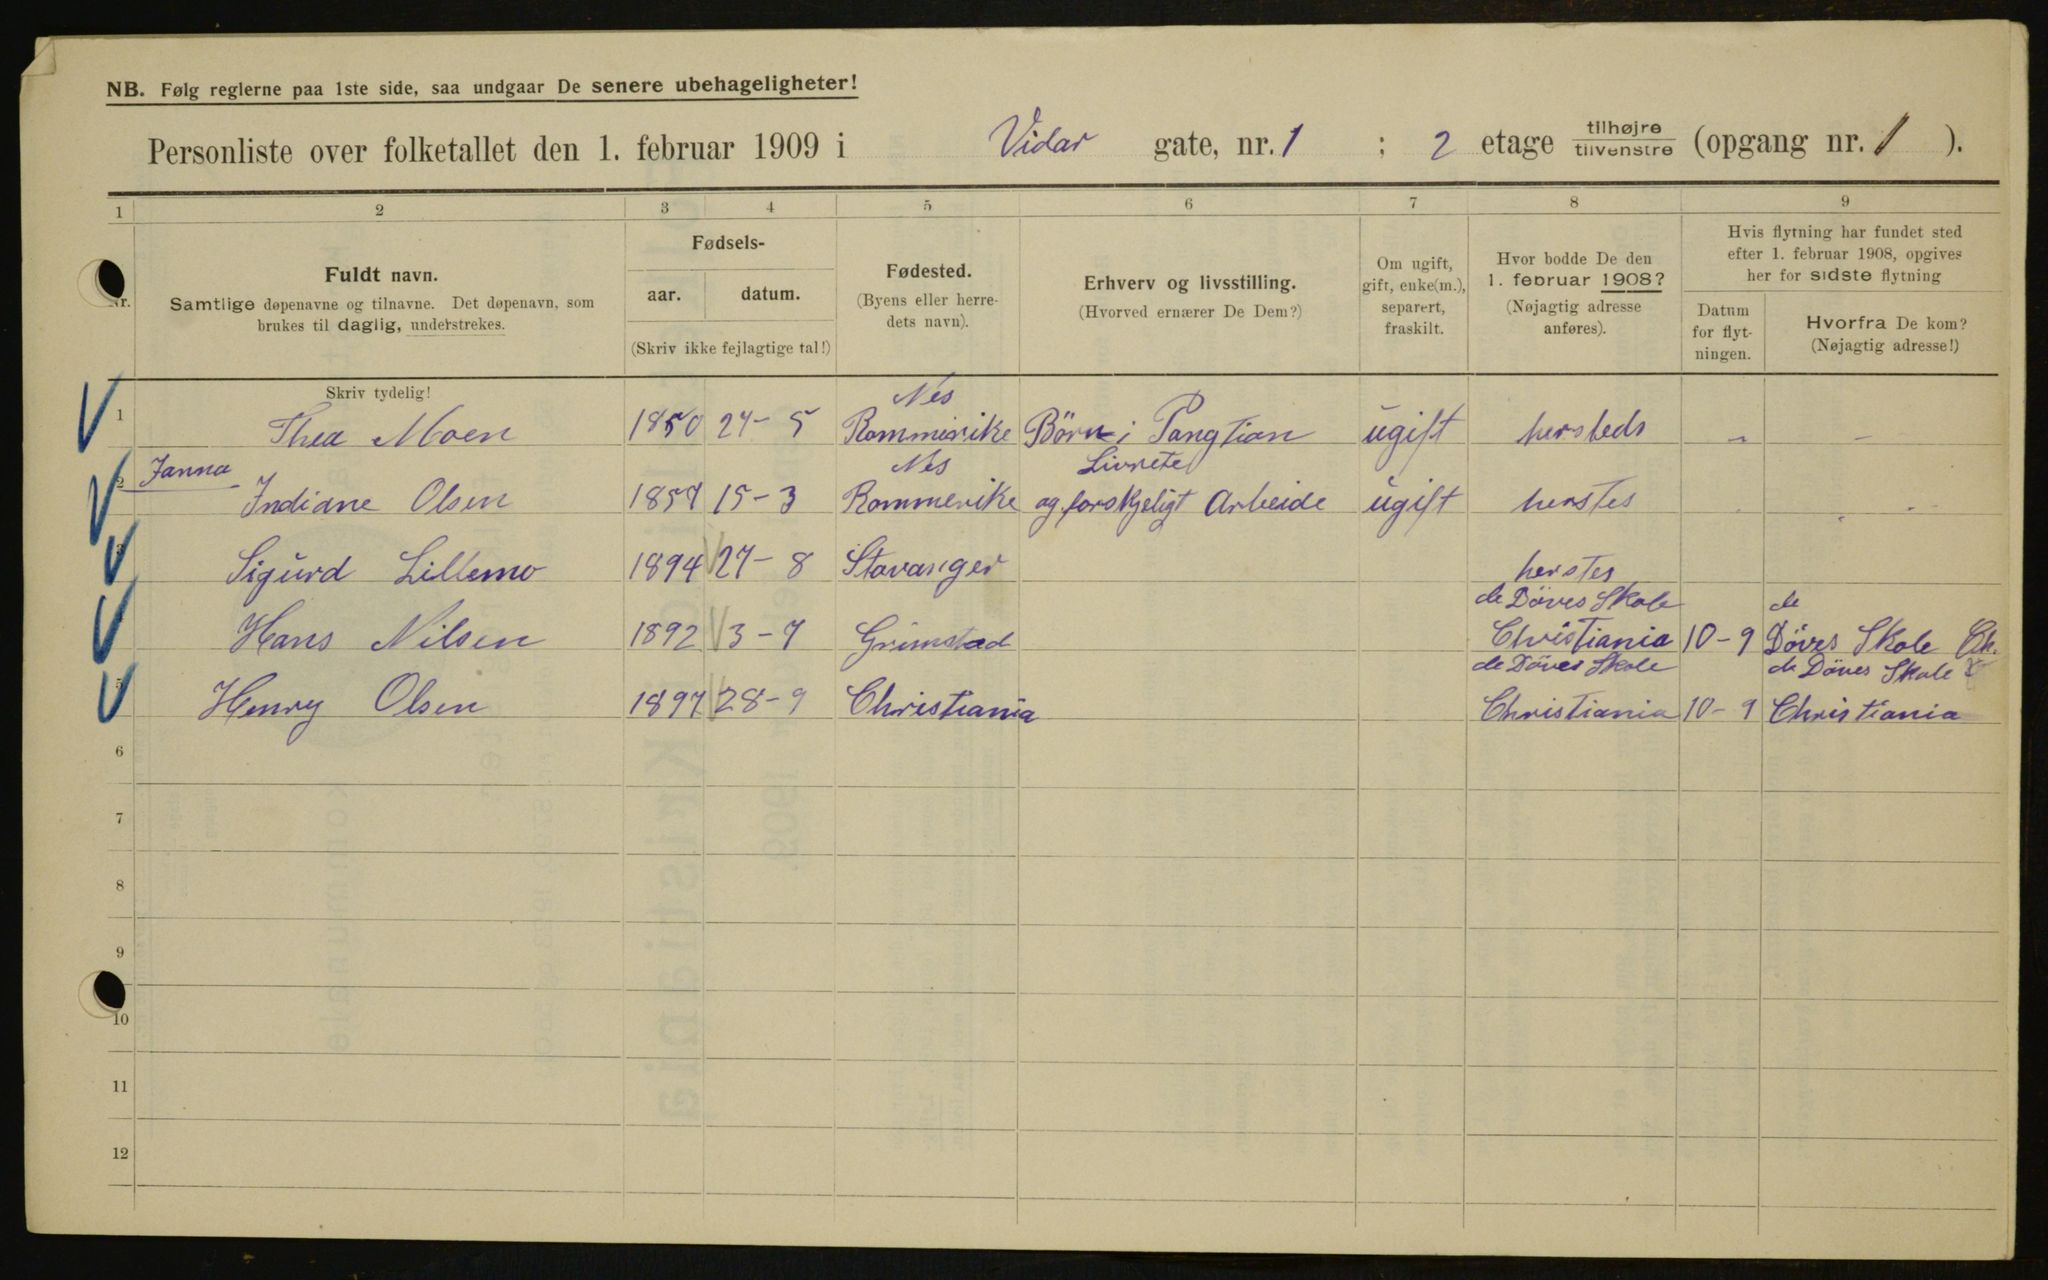 NB. Følg reglerne paa 1ste side, saa undgaar De senere ubehageligheter!
Personliste over folketallet den 1. februar 1909 i Vidar gate, nr. 1 ; 2 etage tilhøjre tilvenstre (opgang nr. 1 ).
1 2 3 4 5 6 7 8 9
Nr.
Fuldt navn.
Samtlige døpenavne og tilnavne. Det døpenavn, som
brukes til daglig, understrekes.
Fødsels-
aar. datum.
(Skriv ikke fejlagtige tal!)
Fødested.
(Byens eller herre-
dets navn).
Erhverv og livsstilling.
(Hvorved ernærer De Dem?)
Om ugift,
gift, enke(m.),
separert,
fraskilt.
Hvor bodde De den
1. februar 1908?
(Nøjagtig adresse
anføres).
Hvis flytning har fundet sted
efter 1. februar 1908, opgives
her for sidste flytning
Datum
for flyt-
ningen.
Hvorfra De kom?
(Nøjagtig adresse!)
Skriv tydelig!
Nes
1 Thea Moen 1850 24-5 Rommerike Börn i Pangtian ugift hersteds - -
Janna Nes Livrete
2 Indiane Olsen 1857 15-3 Rommerike og forskjeligt Arbeide ugift herstes
3 Sigurd Lillemo 1894 27-8 Stavanger herstes
de Döves Skole de
Hans Nilsen 1892 3-7 Grimstad Christiania 10-9 Döves Skole Ch.
de Döves Skole de Döves Skole
5 Henry Olsen 1897 28-9 Christiania Christiania 10-9 Christiania
6
7
8
9
10
11
12